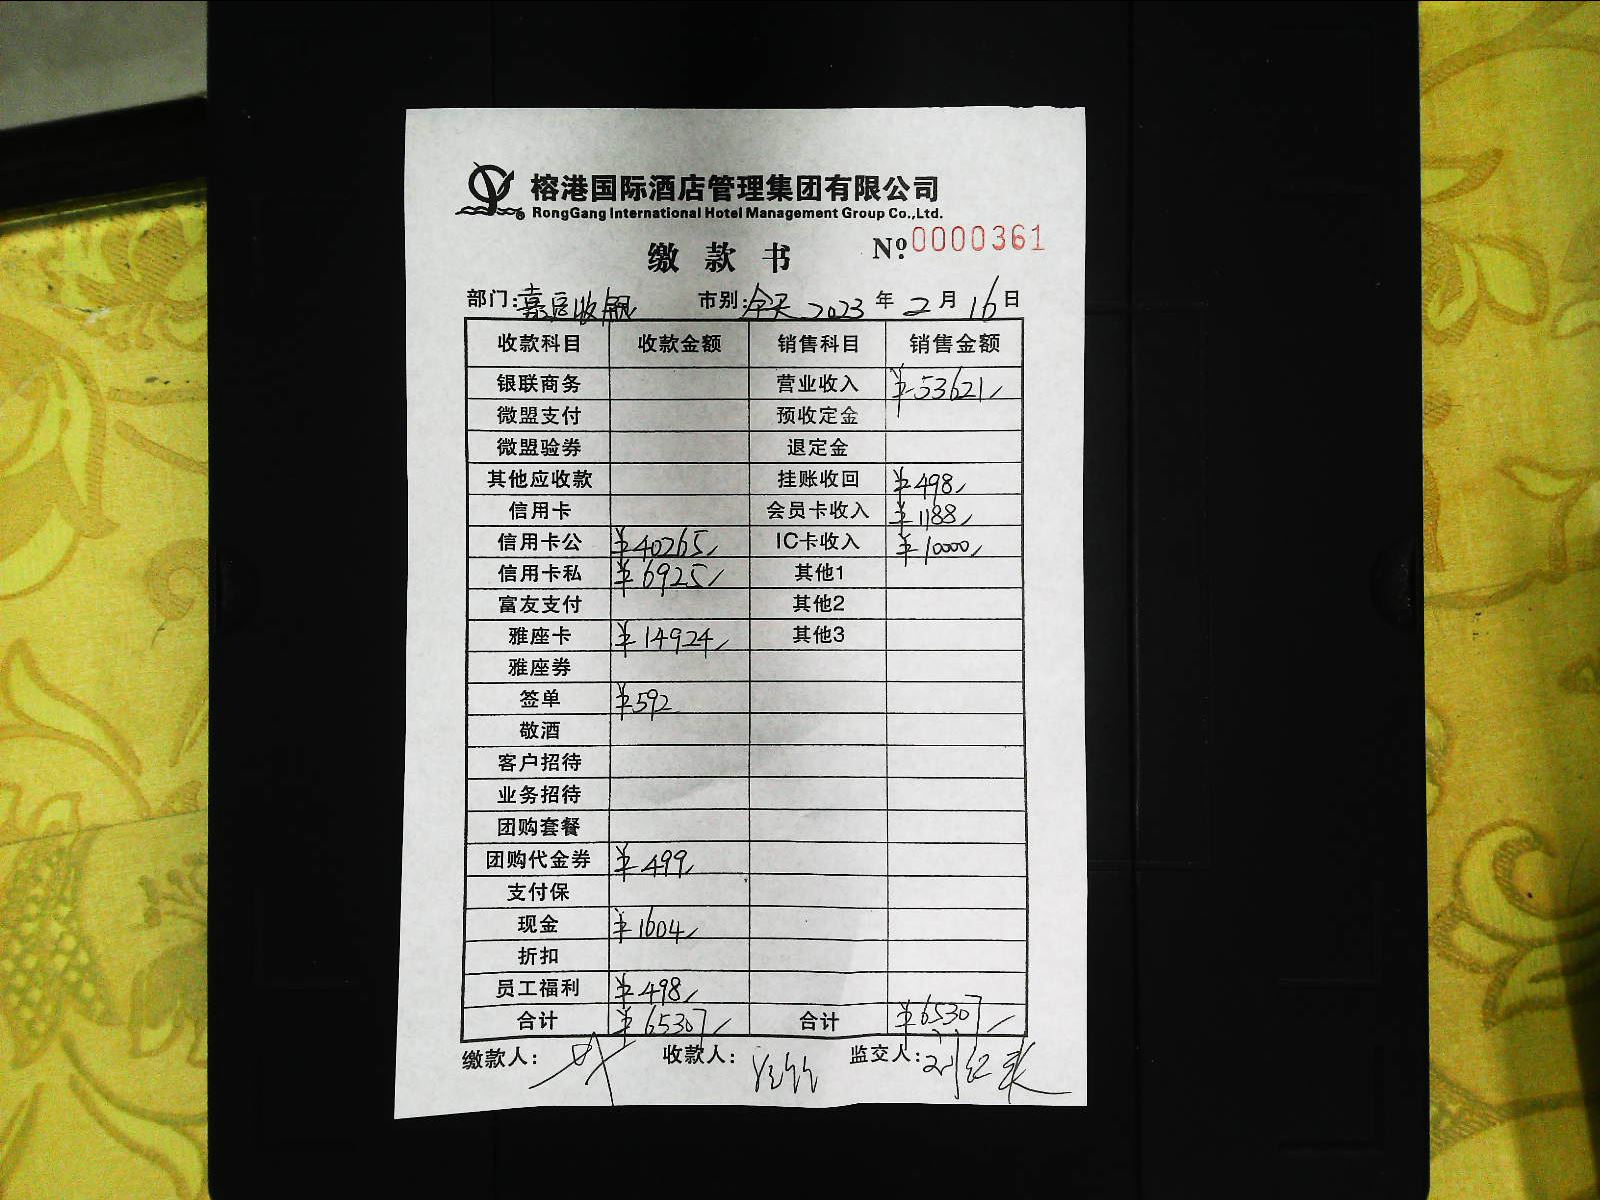 榕港国际酒店管理集团有限公司
RongGang International Hotel Management Group Co.,Ltd.
缴款书 Nº:0000361
部门:嘉宾收银 市别:全天 2023年2月16日
收款科目 收款金额 销售科目 销售金额
银联商务 营业收入 ¥53621
微盟支付 预收定金
微盟验券 退定金
其他应收款 挂账收回 ¥498
信用卡 会员卡收入 ¥1188
信用卡公 ¥40265 IC卡收入 ¥10000
信用卡私 ¥6925 其他1
富友支付 其他2
雅座卡 ¥14924 其他3
雅座券
签单 ¥592
敬酒
客户招待
业务招待
团购套餐
团购代金券 ¥499
支付保
现金 ¥1604
折扣
员工福利 ¥498
合计 ¥65307 合计 ¥65307
缴款人: 收款人: 监交人: